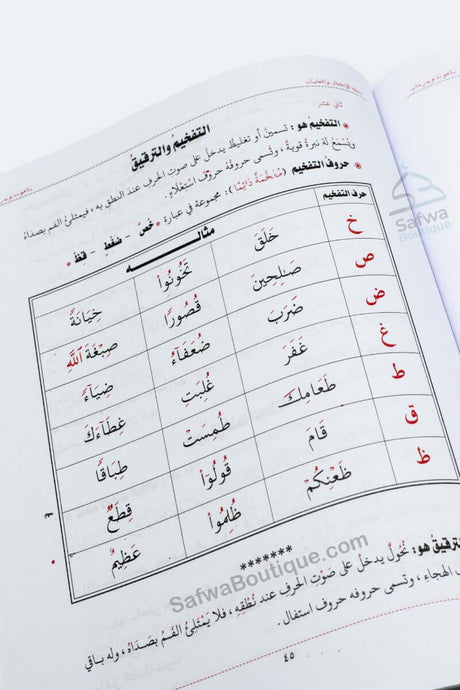 ثاني عشر:
التفخيمُ والترقيقُ
* التفخيمُ هو: تسمينٌ أو تغليظٌ يدخلُ على صوت الحرفِ عند النطق به، فيمتلئُ الفم بصداهُ
ويُسْمَعُ لهُ نبرةً قويةً، وتُسمى حروفهُ حروفَ استعلاءٍ.
* حروفُ التفخيمِ (مُفَخَّمَة دَائِمًا): مجموعة في عبارة * خُصَّ - ضَغْطٍ - قِظْ *
حرف التفخيم مثالــــــه
خ خَلَقَ تَخُونُواْ خِيَانَةً
ص صَٰلِحِينَ قُصُورًا صِبْغَةَ ٱللَّهِ
ض ضَرَبَ ضُعَفَآءُ ضِيَآءً
غ غَفَرَ غُلِبَتِ غِطَآءَكَ
ط طَعَامِكَ طُمِسَتْ طِبَاقًا
ق قَامَ قُولُوٓاْ قِطَعٌ
ظ ظَعْنِكُمْ ظُلِمُواْ عَظِيمٌ
*******
الترقيقُ هو: نُحُولٌ يدخلُ على صَوْتِ الحرفِ عند نُطْقِهِ، فلا يَمْتَلِئُ الفَمُ بصَدَاهُ، وله باقي
الهجاء، وتسمى حروفه حروف استفال.
٤٥
Safwa
Boutique
SafwaBoutique.com